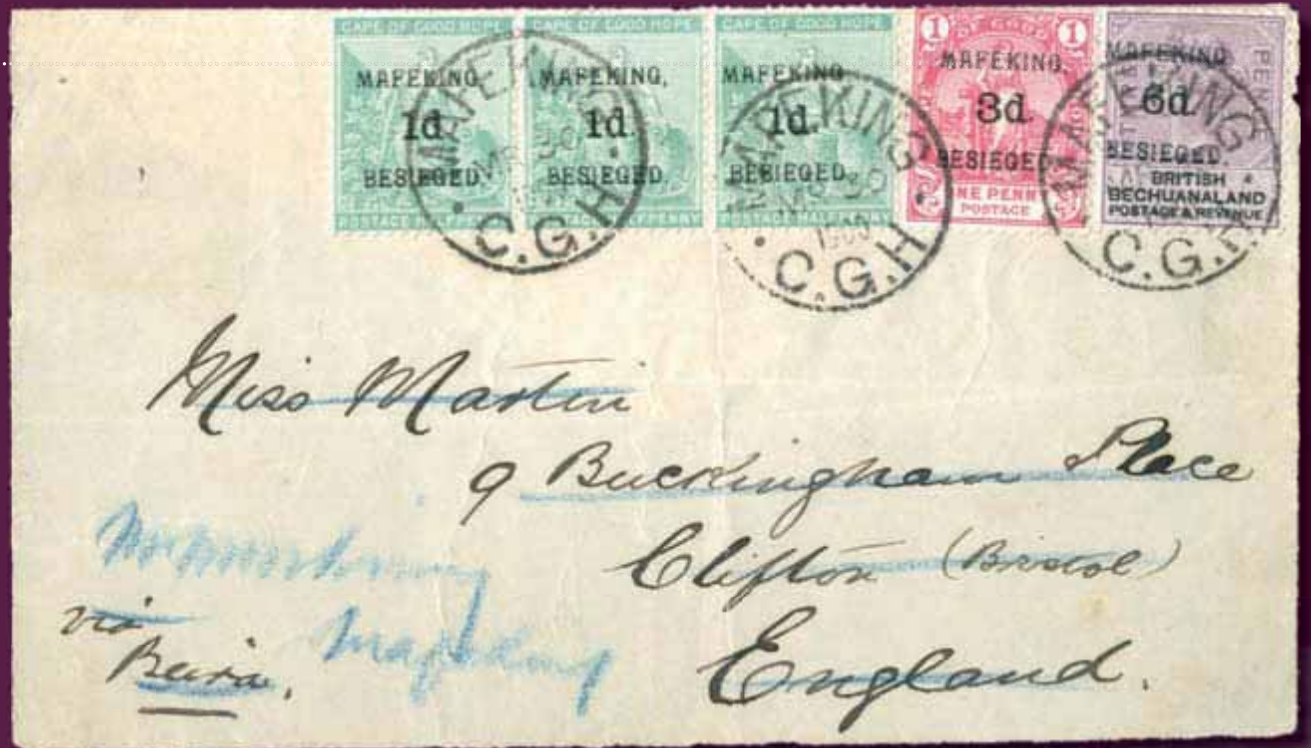 CAPE OF GOOD HOPE CAPE OF GOOD HOPE CAPE OF GOOD HOPE
MAFEKING, 1d. BESIEGED.
MAFEKING, 1d. BESIEGED.
POSTAGE HALF PENNY
MAFEKING, 1d. BESIEGED.
POSTAGE HALF PENNY
1 OF GOOD 1
MAFEKING, 3d. BESIEGED.
ONE PENNY
POSTAGE
MAFEKING, 6d. BESIEGED.
BRITISH
BECHUANALAND
POSTAGE & REVENUE
MAFEKING C.G.H
MAFEKING 1900 C.G.H
MAFEKING C.G.H
Miss Martin
9 Buckingham Place
Clifton (Bristol)
England.
via
Beira.
Mafeking